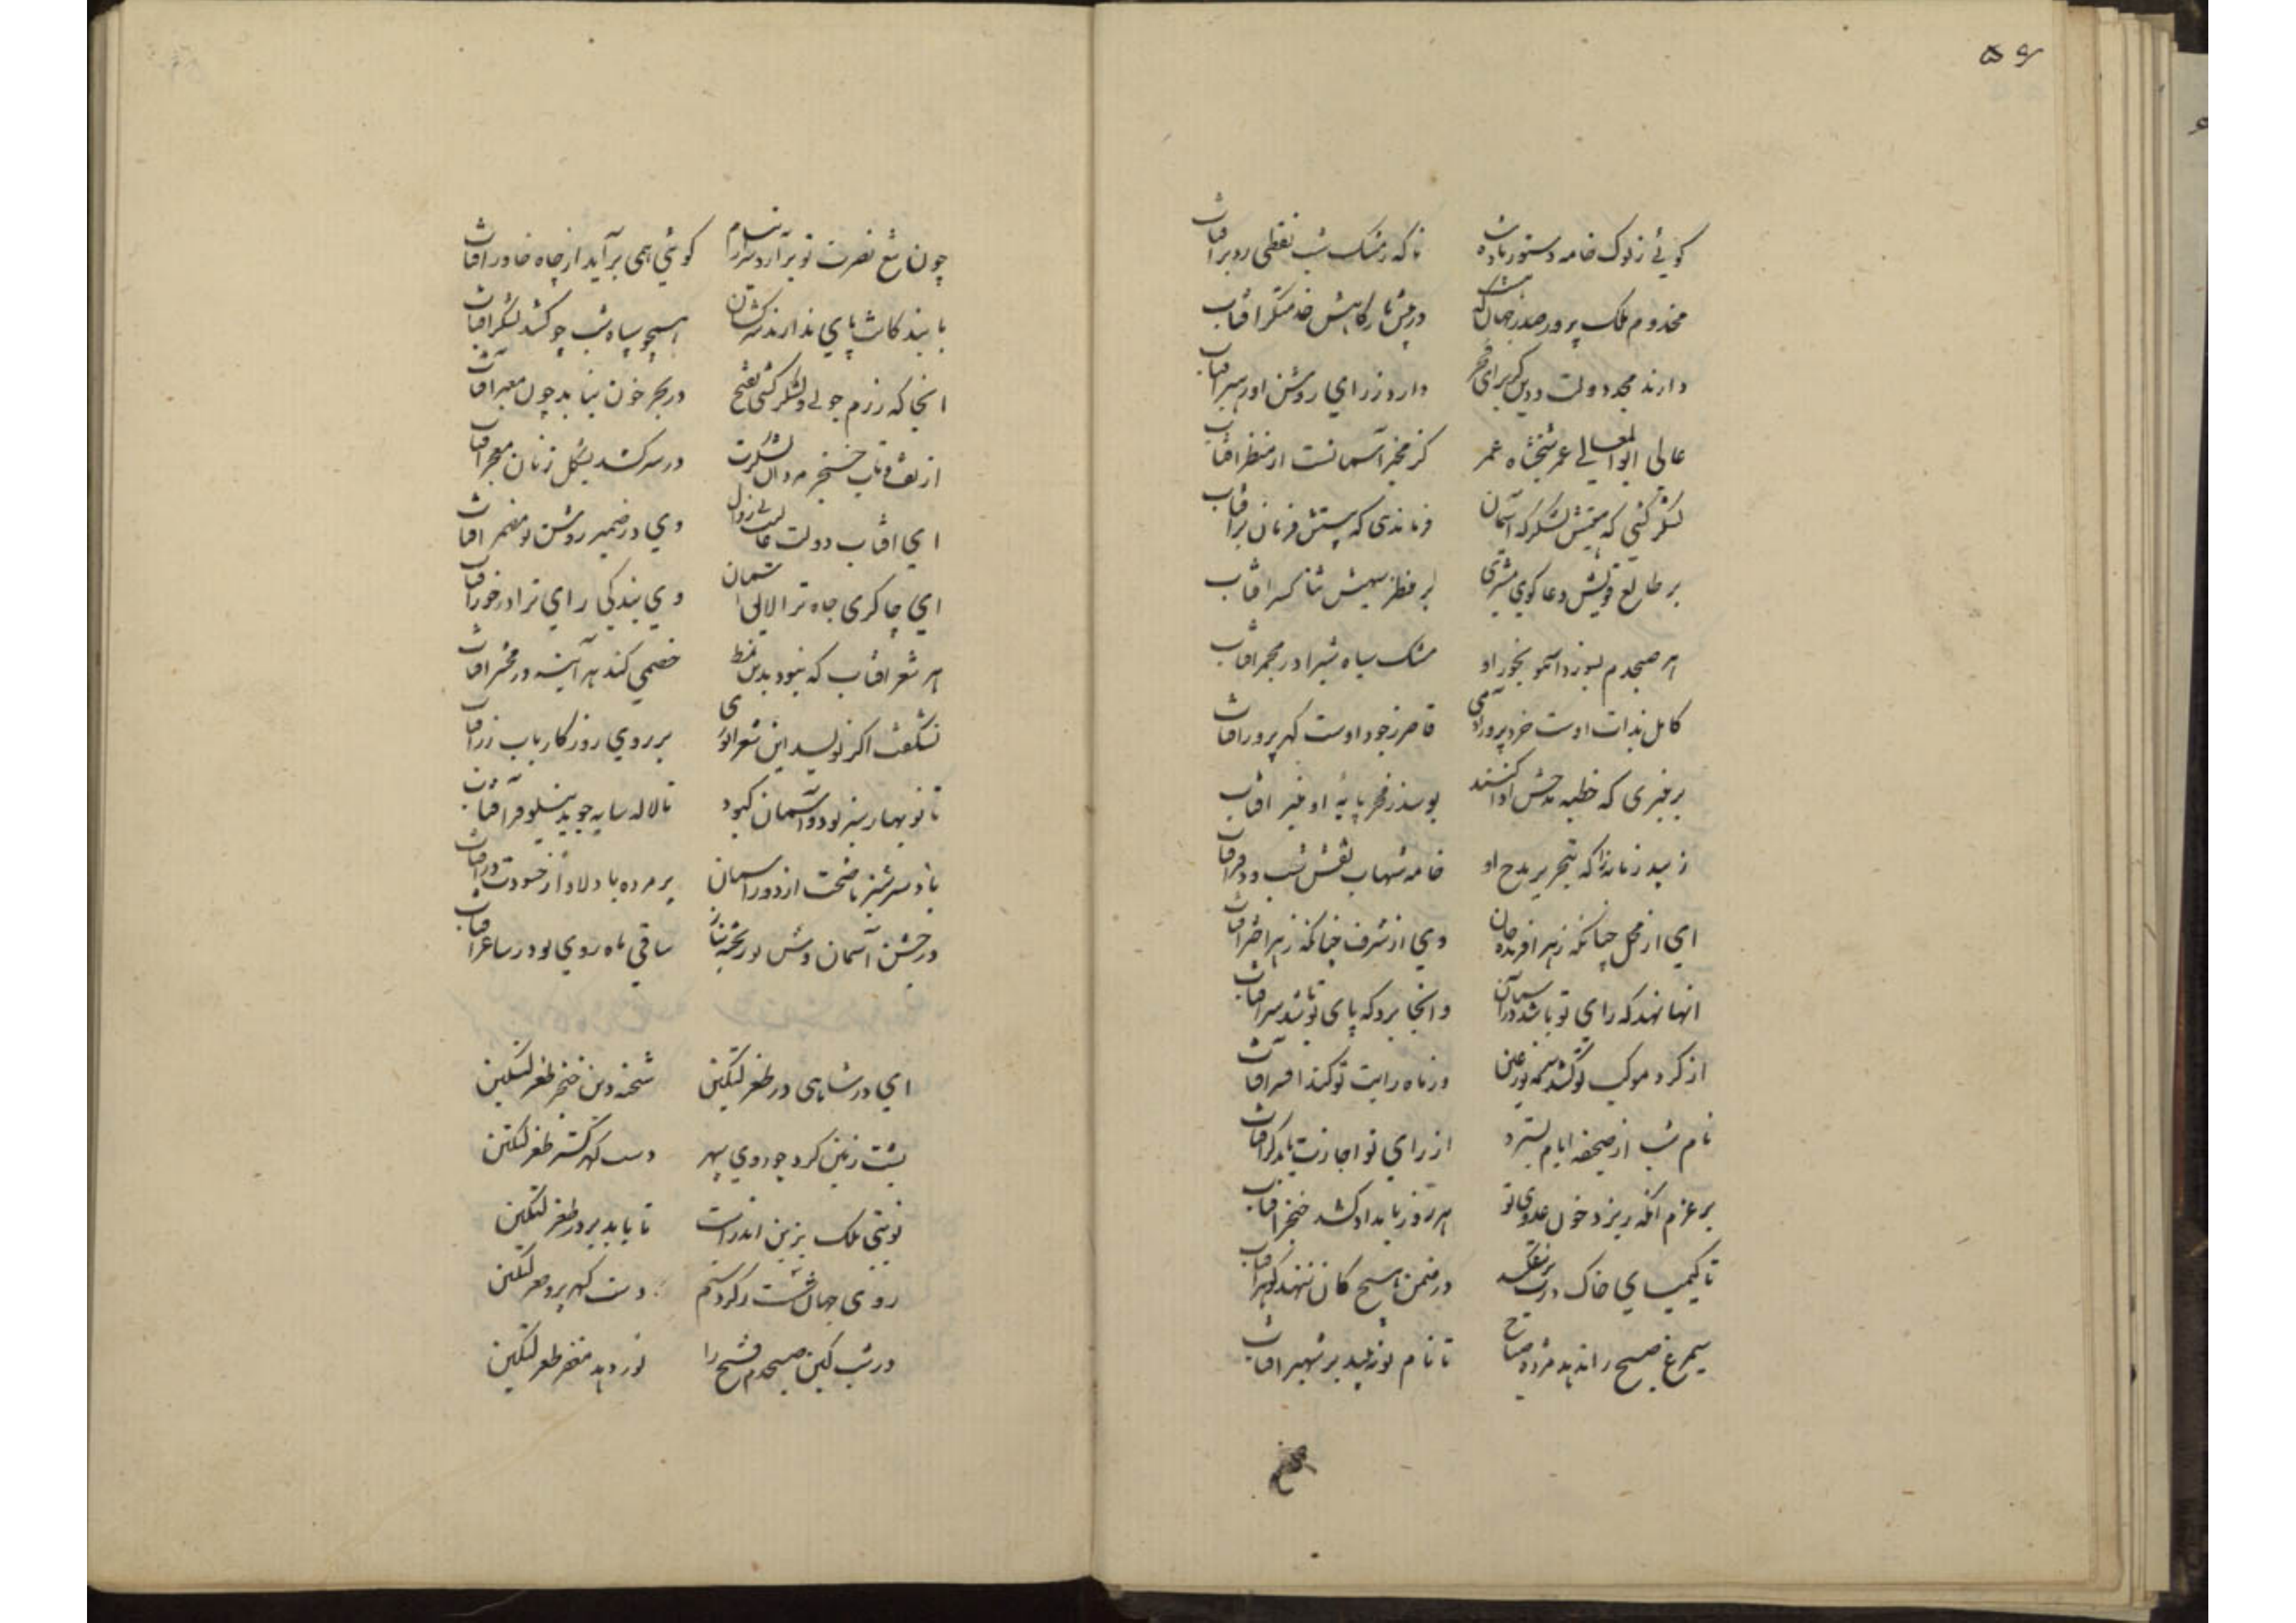 ۵۶
گویی ز نوک خامه دستور باده
ناگه ز مشک شب نقطی زد بر آفتاب
مخدوم ملک پرور صدر جهان که
در پیش بارگاهش خدمتگر آفتاب
دارنده مجد دولت و دین کز برای فخر
دارد ز رای روشن او رهبر آفتاب
عالی ابو المعالی عمر شخیناه عمر
کز مخبر آسمانست از منظر آفتاب
لشکر کشی که هستش لشکرگه آسمان
فرماندهی که هستش فرمان بر آفتاب
بر طالع قویش دعا گوی مشتری
بر منظر بهیش ثنا گستر آفتاب
هر صبحدم بسوزد از بهر بخور او
مشک سیاه شب را در مجمر آفتاب
کامل بذات اوست خرد پرور آدمی
قاصر ز جود اوست گهر پرور آفتاب
بر منبری که خطبه مدحش ادا کنند
بوسد ز فخر پایه او منبر آفتاب
زیبد زمانه را که بتحریر مدح او
خامه شهاب نقش شب و دفتر آفتاب
ای از محل چنانکه ز بهر آفریده جان
وی از شرف چنانکه ز بهر اختر آفتاب
آنجا نهد که رای تو باشد دل آسمان
وانجا برد که پای تو باشد سر آفتاب
از گرد موکب تو کشد سرمه حور عین
وز ماه رایت تو کند افسر آفتاب
نام شب از صحیفه ایام بسترد
از رای تو اجازت یابد گر آفتاب
بر عزم آنکه ریزد خون عدوی تو
هر روز بامداد کشد خنجر آفتاب
تا کیمیای خاک درت بر نیفکند
در ضمن هیچ کان ننهد گوهر آفتاب
سیمرغ صبح را ندهد مژده صباح
تا نام تو نبیند بر شهپر آفتاب
چون تیغ نصرت تو برآرد سر از نیام
گویی همی برآید از چاه خاور آفتاب
با بندگانت پای ندارند سرکشان
هم چو سپاه شب چو کشد لشکر آفتاب
آنجا که رزم جویی و لشکر کشی بفتح
در بحر خون نیابد چون معبر آفتاب
از تف و تاب خنجر مردان لشکرت
در سر کشد بشکل زنان معجر آفتاب
ای آفتاب دولت عالیت بی زوال
وی در ضمیر روشن تو مضمر آفتاب
ای چاکری جاه ترا لایق آسمان
وی بندگی رای ترا درخور آفتاب
هر شعر آفتاب که نبود بدین نمط
خصمی کند هر آینه در محشر آفتاب
نشگفت اگر نویسد این شعر انوری
بر روی روزگار بآب زر آفتاب
تا نوبهار سبز بود و آسمان کبود
تا لاله سایه جوید نیلوفر آفتاب
باد سر سبز باغت از دور آسمان
پژمرده باد لاله عمر حسودت در آفتاب
در جشن آسمان وش تو ریخته بناز
ساقی ماه روی تو در ساغر آفتاب
ای در شاهی در طغرلتکین
شحنه دین خنجر طغرلتکین
پشت زمین کرد چو روی سپهر
دست گهر گستر طغرلتکین
نوبتی ملک بزین اندرست
تا بابد بر در طغرلتکین
روی جهان شست ز گرد ستم
دست گهر پرور طغرلتکین
در شب کین صبحدم فتح را
نور دهد مغفر طغرلتکین